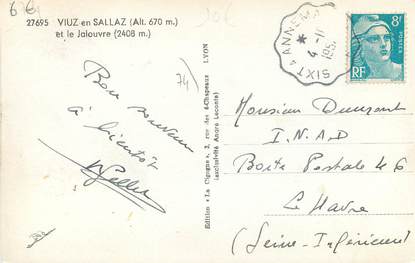 6 €
20€
27695 VIUZ en SALLAZ (Alt. 670 m.)
et le Jalouvre (2408 m.)
74)
Bon souvenir
à bientôt
Edition "La Cigogne", 2, rue des 4-Chapeaux LYON
(exclusivité André Leconte)
SIXT A ANNEMASSE
4-11
195
8F
RF
Monsieur Dumont
I.N.A.D
Boite Postale 46
Le Havre
(Seine-Inférieure)